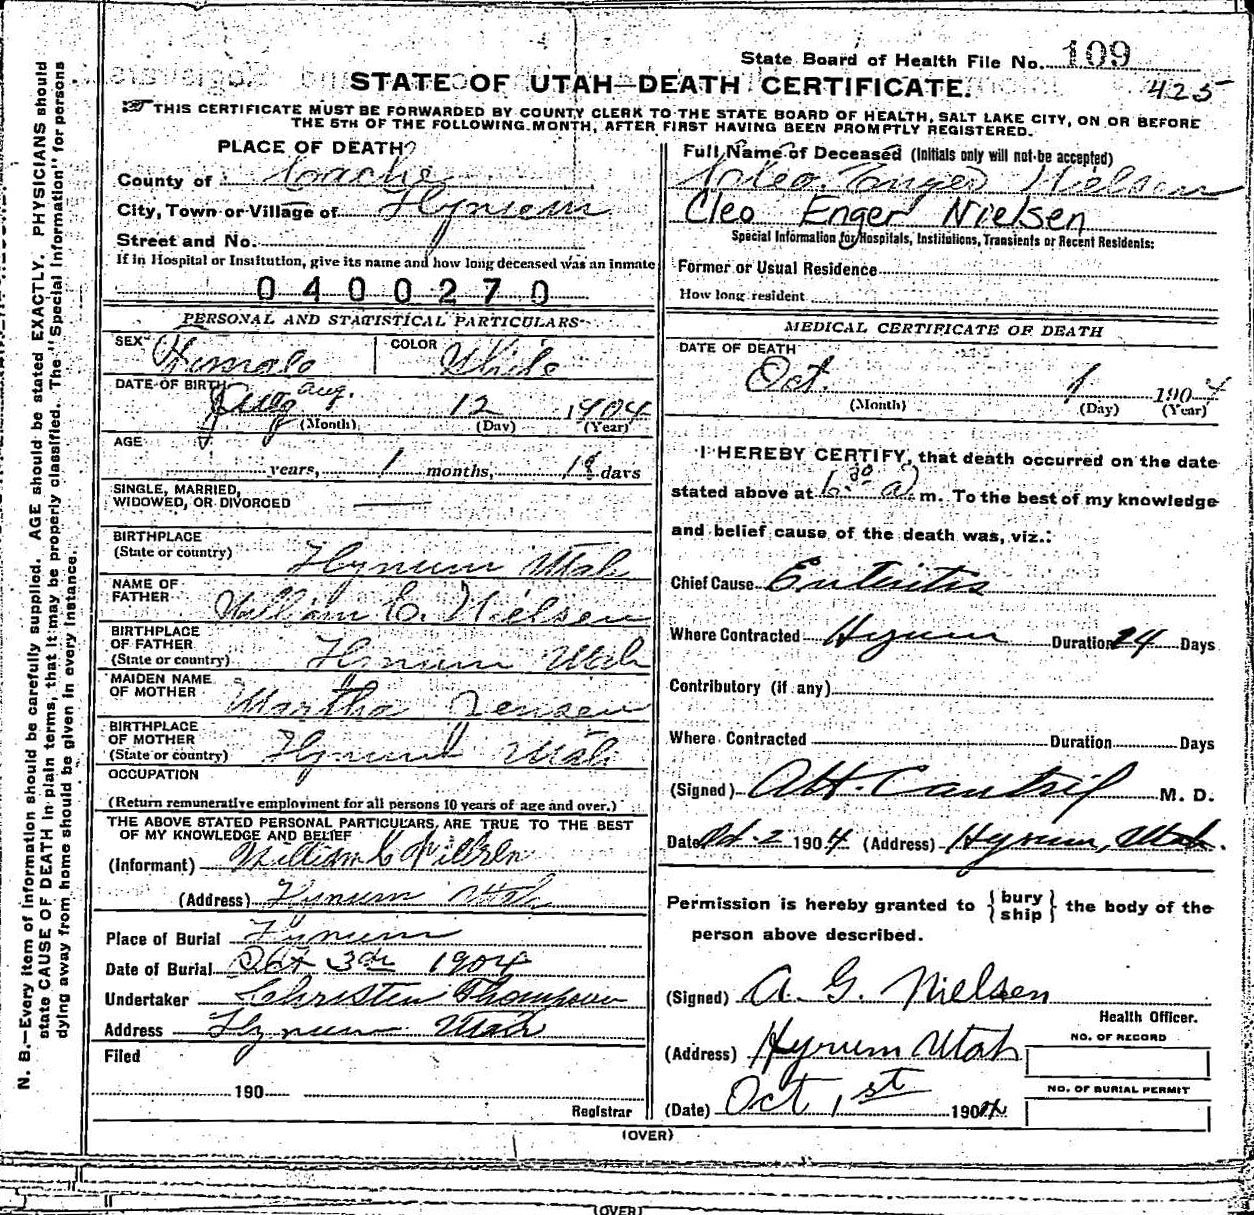 State Board of Health File No. 109
STATE OF UTAH—DEATH CERTIFICATE.
425
THIS CERTIFICATE MUST BE FORWARDED BY COUNTY CLERK TO THE STATE BOARD OF HEALTH, SALT LAKE CITY, ON OR BEFORE
THE 5TH OF THE FOLLOWING MONTH, AFTER FIRST HAVING BEEN PROMPTLY REGISTERED.
PLACE OF DEATH
County of Cache
City, Town or Village of Hyrum
Street and No.
If in Hospital or Institution, give its name and how long deceased was an inmate
0400270
PERSONAL AND STATISTICAL PARTICULARS
SEX Female COLOR White
DATE OF BIRTH Aug. 12 1904
(Month) (Day) (Year)
AGE
years, 1 months, 18 days
SINGLE, MARRIED,
WIDOWED, OR DIVORCED
BIRTHPLACE
(State or country) Hyrum Utah
NAME OF
FATHER William C. Nielsen
BIRTHPLACE
OF FATHER
(State or country) Hyrum Utah
MAIDEN NAME
OF MOTHER Martha Jensen
BIRTHPLACE
OF MOTHER
(State or country) Hyrum Utah
OCCUPATION
(Return remunerative employment for all persons 10 years of age and over.)
THE ABOVE STATED PERSONAL PARTICULARS ARE TRUE TO THE BEST
OF MY KNOWLEDGE AND BELIEF
(Informant) William C Nielsen
(Address) Hyrum Utah
Place of Burial Hyrum
Date of Burial Oct 3rd 1904
Undertaker Christen Thompson
Address Hyrum Utah
Filed
190
Registrar
Full Name of Deceased (Initials only will not be accepted)
Cleo Enger Nielsen
Cleo Enger Nielsen
Special Information for Hospitals, Institutions, Transients or Recent Residents:
Former or Usual Residence
How long resident
MEDICAL CERTIFICATE OF DEATH
DATE OF DEATH
Oct. 1 1904
(Month) (Day) (Year)
I HEREBY CERTIFY, that death occurred on the date
stated above at 6.30 a m. To the best of my knowledge
and belief cause of the death was, viz.:
Chief Cause Enteritis
Where Contracted Hyrum Duration 24 Days
Contributory (if any)
Where Contracted Duration Days
(Signed) M. D.
Date Oct 2 1904 (Address) Hyrum, Utah.
Permission is hereby granted to {bury
ship} the body of the
person above described.
(Signed) A. G. Nielsen
Health Officer.
(Address) Hyrum Utah
NO. OF RECORD
NO. OF BURIAL PERMIT
(Date) Oct 1st 1904
(OVER)
(OVER)
N. B.—Every item of information should be carefully supplied. AGE should be stated EXACTLY. PHYSICIANS should
state CAUSE OF DEATH in plain terms, that it may be properly classified. The "Special Information" for persons
dying away from home should be given in every instance.